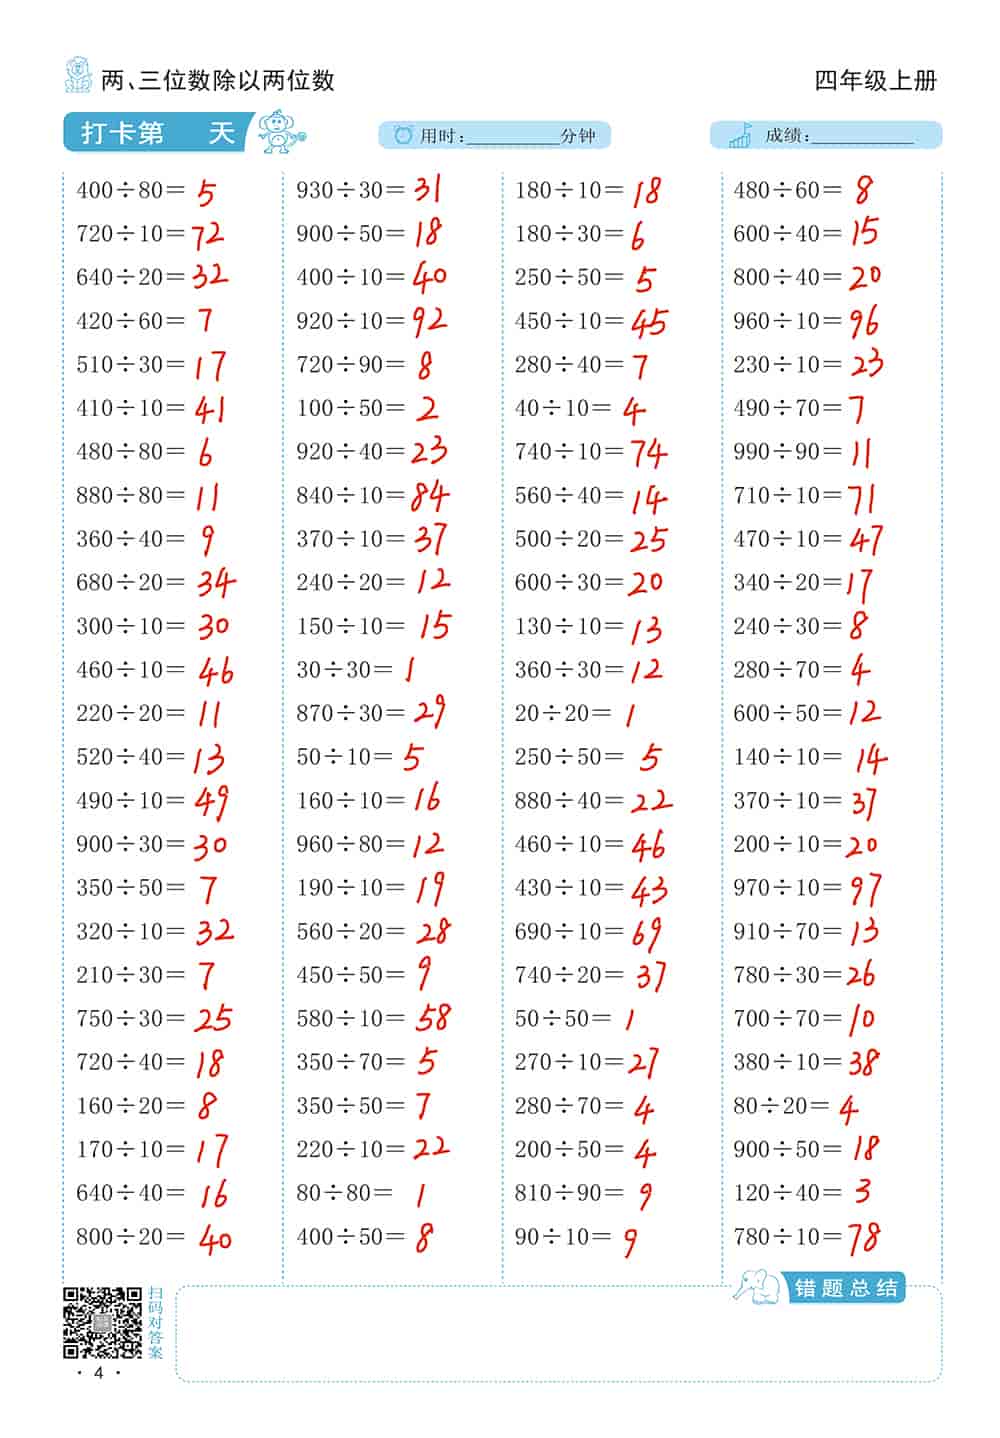 两、三位数除以两位数 四年级上册
打卡第 天 用时:__________分钟 成绩:__________
400÷80= 5 930÷30= 31 180÷10= 18 480÷60= 8
720÷10= 72 900÷50= 18 180÷30= 6 600÷40= 15
640÷20= 32 400÷10= 40 250÷50= 5 800÷40= 20
420÷60= 7 920÷10= 92 450÷10= 45 960÷10= 96
510÷30= 17 720÷90= 8 280÷40= 7 230÷10= 23
410÷10= 41 100÷50= 2 40÷10= 4 490÷70= 7
480÷80= 6 920÷40= 23 740÷10= 74 990÷90= 11
880÷80= 11 840÷10= 84 560÷40= 14 710÷10= 71
360÷40= 9 370÷10= 37 500÷20= 25 470÷10= 47
680÷20= 34 240÷20= 12 600÷30= 20 340÷20= 17
300÷10= 30 150÷10= 15 130÷10= 13 240÷30= 8
460÷10= 46 30÷30= 1 360÷30= 12 280÷70= 4
220÷20= 11 870÷30= 29 20÷20= 1 600÷50= 12
520÷40= 13 50÷10= 5 250÷50= 5 140÷10= 14
490÷10= 49 160÷10= 16 880÷40= 22 370÷10= 37
900÷30= 30 960÷80= 12 460÷10= 46 200÷10= 20
350÷50= 7 190÷10= 19 430÷10= 43 970÷10= 97
320÷10= 32 560÷20= 28 690÷10= 69 910÷70= 13
210÷30= 7 450÷50= 9 740÷20= 37 780÷30= 26
750÷30= 25 580÷10= 58 50÷50= 1 700÷70= 10
720÷40= 18 350÷70= 5 270÷10= 27 380÷10= 38
160÷20= 8 350÷50= 7 280÷70= 4 80÷20= 4
170÷10= 17 220÷10= 22 200÷50= 4 900÷50= 18
640÷40= 16 80÷80= 1 810÷90= 9 120÷40= 3
800÷20= 40 400÷50= 8 90÷10= 9 780÷10= 78
扫码对答案
错题总结
· 4 ·